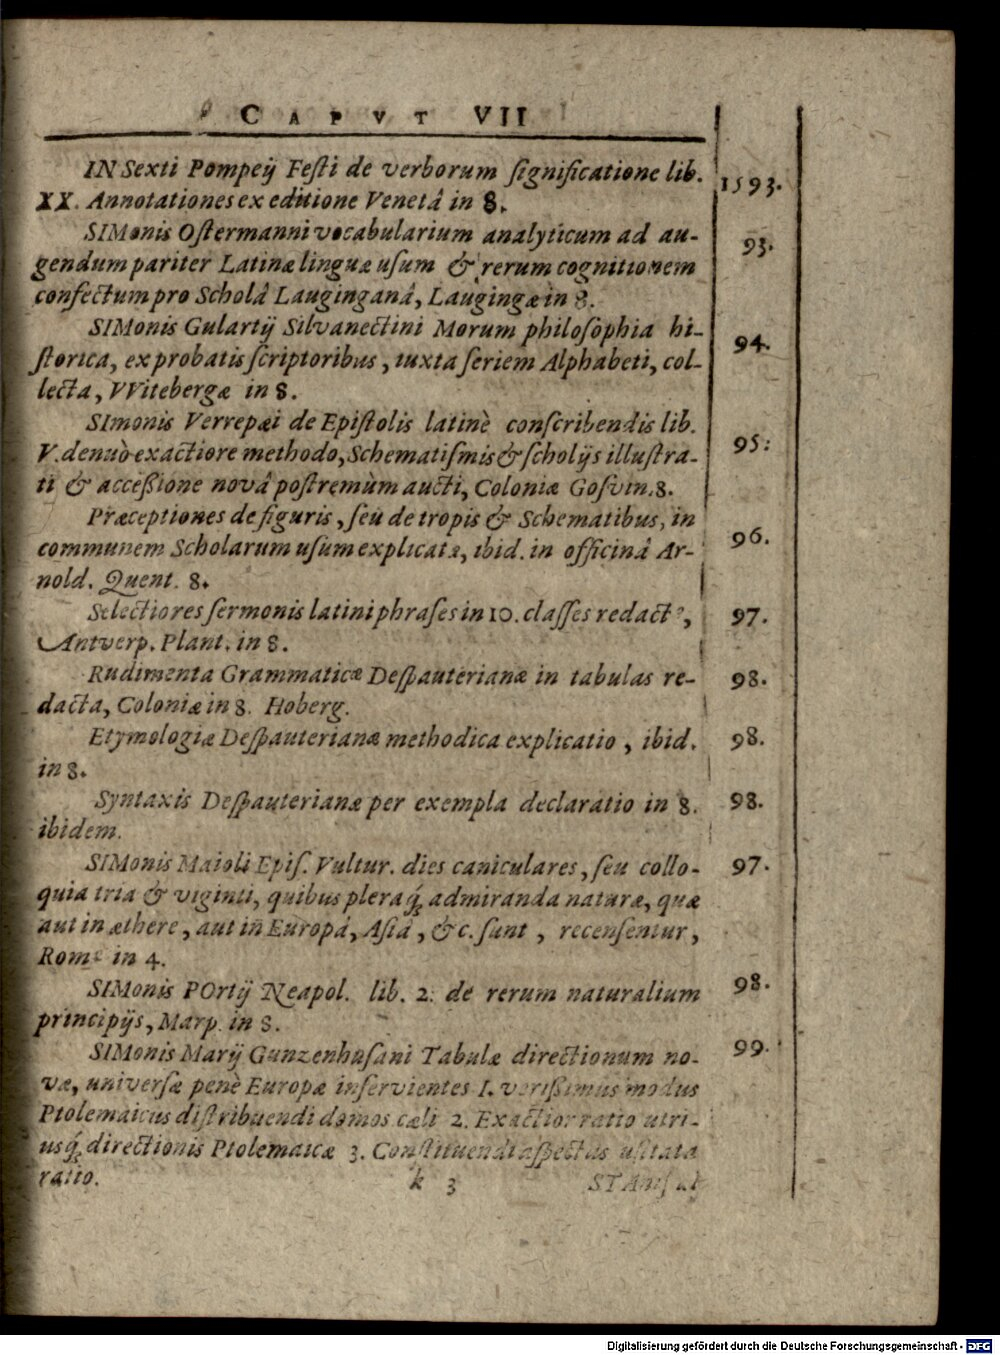 CAPVT VII
IN Sexti Pompeij Festi de verborum significatione lib. 1593.
XX. Annotationes ex editione Venetâ in 8.
SIMonis Ostermanni vocabularium analyticum ad au- 93.
gendum pariter Latinæ linguæ usum & rerum cognitionem
confectum pro Scholâ Lauginganâ, Laugingæ in 8.
SIMonis Gulartij Silvanectini Morum philosophia hi- 94.
storica, ex probatis scriptoribus, iuxta seriem Alphabeti, col-
lecta, VVitebergæ in 8.
SImonis Verrepæi de Epistolis latinè conscribendis lib. 95.
V. denuò exactiore methodo, Schematismis & scholijs illustra-
ti & accessione novâ postremùm aucti, Coloniæ Gosvin. 8.
Præceptiones de figuris, seu de tropis & Schematibus, in 96.
communem Scholarum usum explicatæ, ibid. in officinâ Ar-
nold. Quent. 8.
Selectiores sermonis latini phrases in 10. classes redactę, 97.
Antverp. Plant. in 8.
Rudimenta Grammaticæ Despauterianæ in tabulas re- 98.
dacta, Coloniæ in 8. Hoberg.
Etymologiæ Despauterianæ methodica explicatio, ibid. 98.
in 8.
Syntaxis Despauterianæ per exempla declaratio in 8. 98.
ibidem.
SIMonis Maioli Epis. Vultur. dies caniculares, seu collo- 97.
quia tria & viginti, quibus pleraq́; admiranda naturæ, quæ
aut in æthere, aut in Europâ, Asiâ, &c. sunt, recensentur,
Romę in 4.
SIMonis POrtij Neapol. lib. 2. de rerum naturalium 98.
principijs, Marp. in 8.
SIMonis Marij Gunzenhusani Tabulæ directionum no- 99.
væ, universæ penè Europæ inservientes 1. verissimus modus
Ptolemaicus distribuendi domos cæli 2. Exactior ratio utri-
usq́; directionis Ptolemaicæ 3. Constituendi aspectus usitata
ratio.
k 3
Digitalisierung gefördert durch die Deutsche Forschungsgemeinschaft - DFG